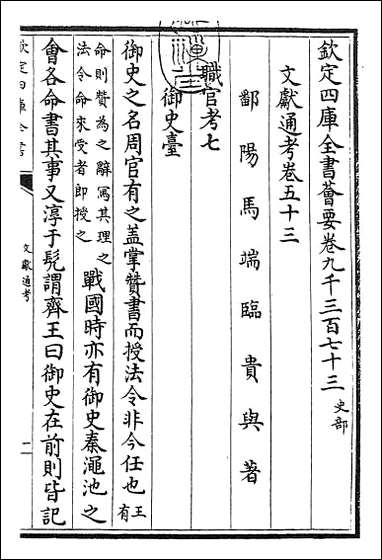 欽定四庫全書薈要卷九千三百七十三 史部
文獻通考卷五十三
鄱陽馬端臨貴與著
職官考七
御史臺
御史之名周官有之蓋掌贊書而授法令非今任也 王有
命則贊為之辭寫其理之
法令命來受者即授之
戰國時亦有御史秦澠池之
會各命書其事又淳于髠謂齊王曰御史在前則皆記
欽定四庫全書
文獻通考